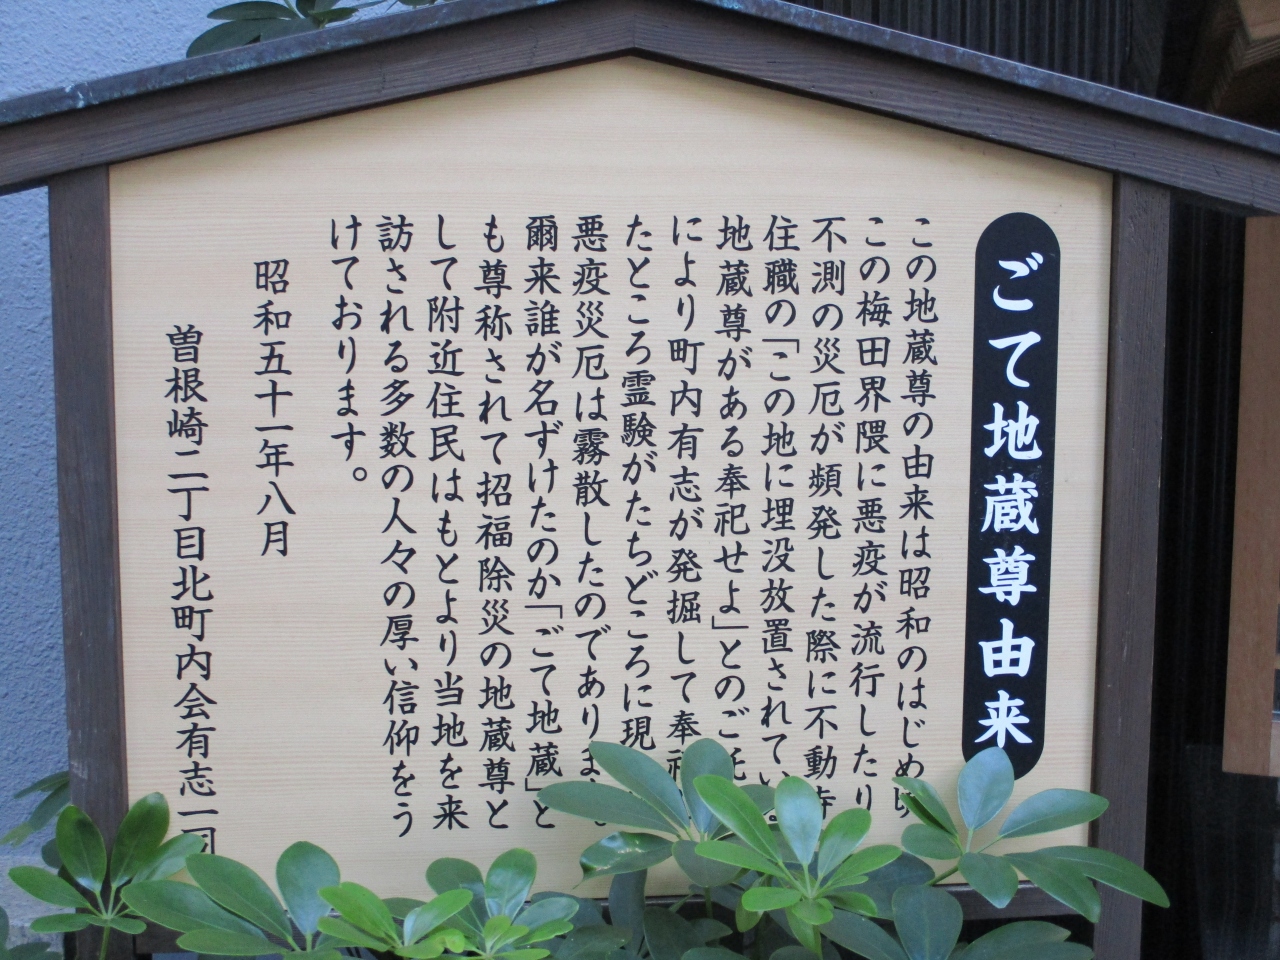 ごて地蔵尊由来
この地蔵尊の由来は昭和のはじめ頃
この梅田界隈に悪疫が流行したり
不測の災厄が頻発した際に不動寺
住職の「この地に埋没放置されている
地蔵尊がある奉祀せよ」とのご託
により町内有志が発掘して奉祀
たところ霊験がたちどころに現
悪疫災厄は霧散したのであります。
爾来誰が名ずけたのか「ごて地蔵」と
も尊称されて招福除災の地蔵尊と
して附近住民はもとより当地を来
訪される多数の人々の厚い信仰をう
けております。
昭和五十一年八月
曽根崎二丁目北町内会有志一同